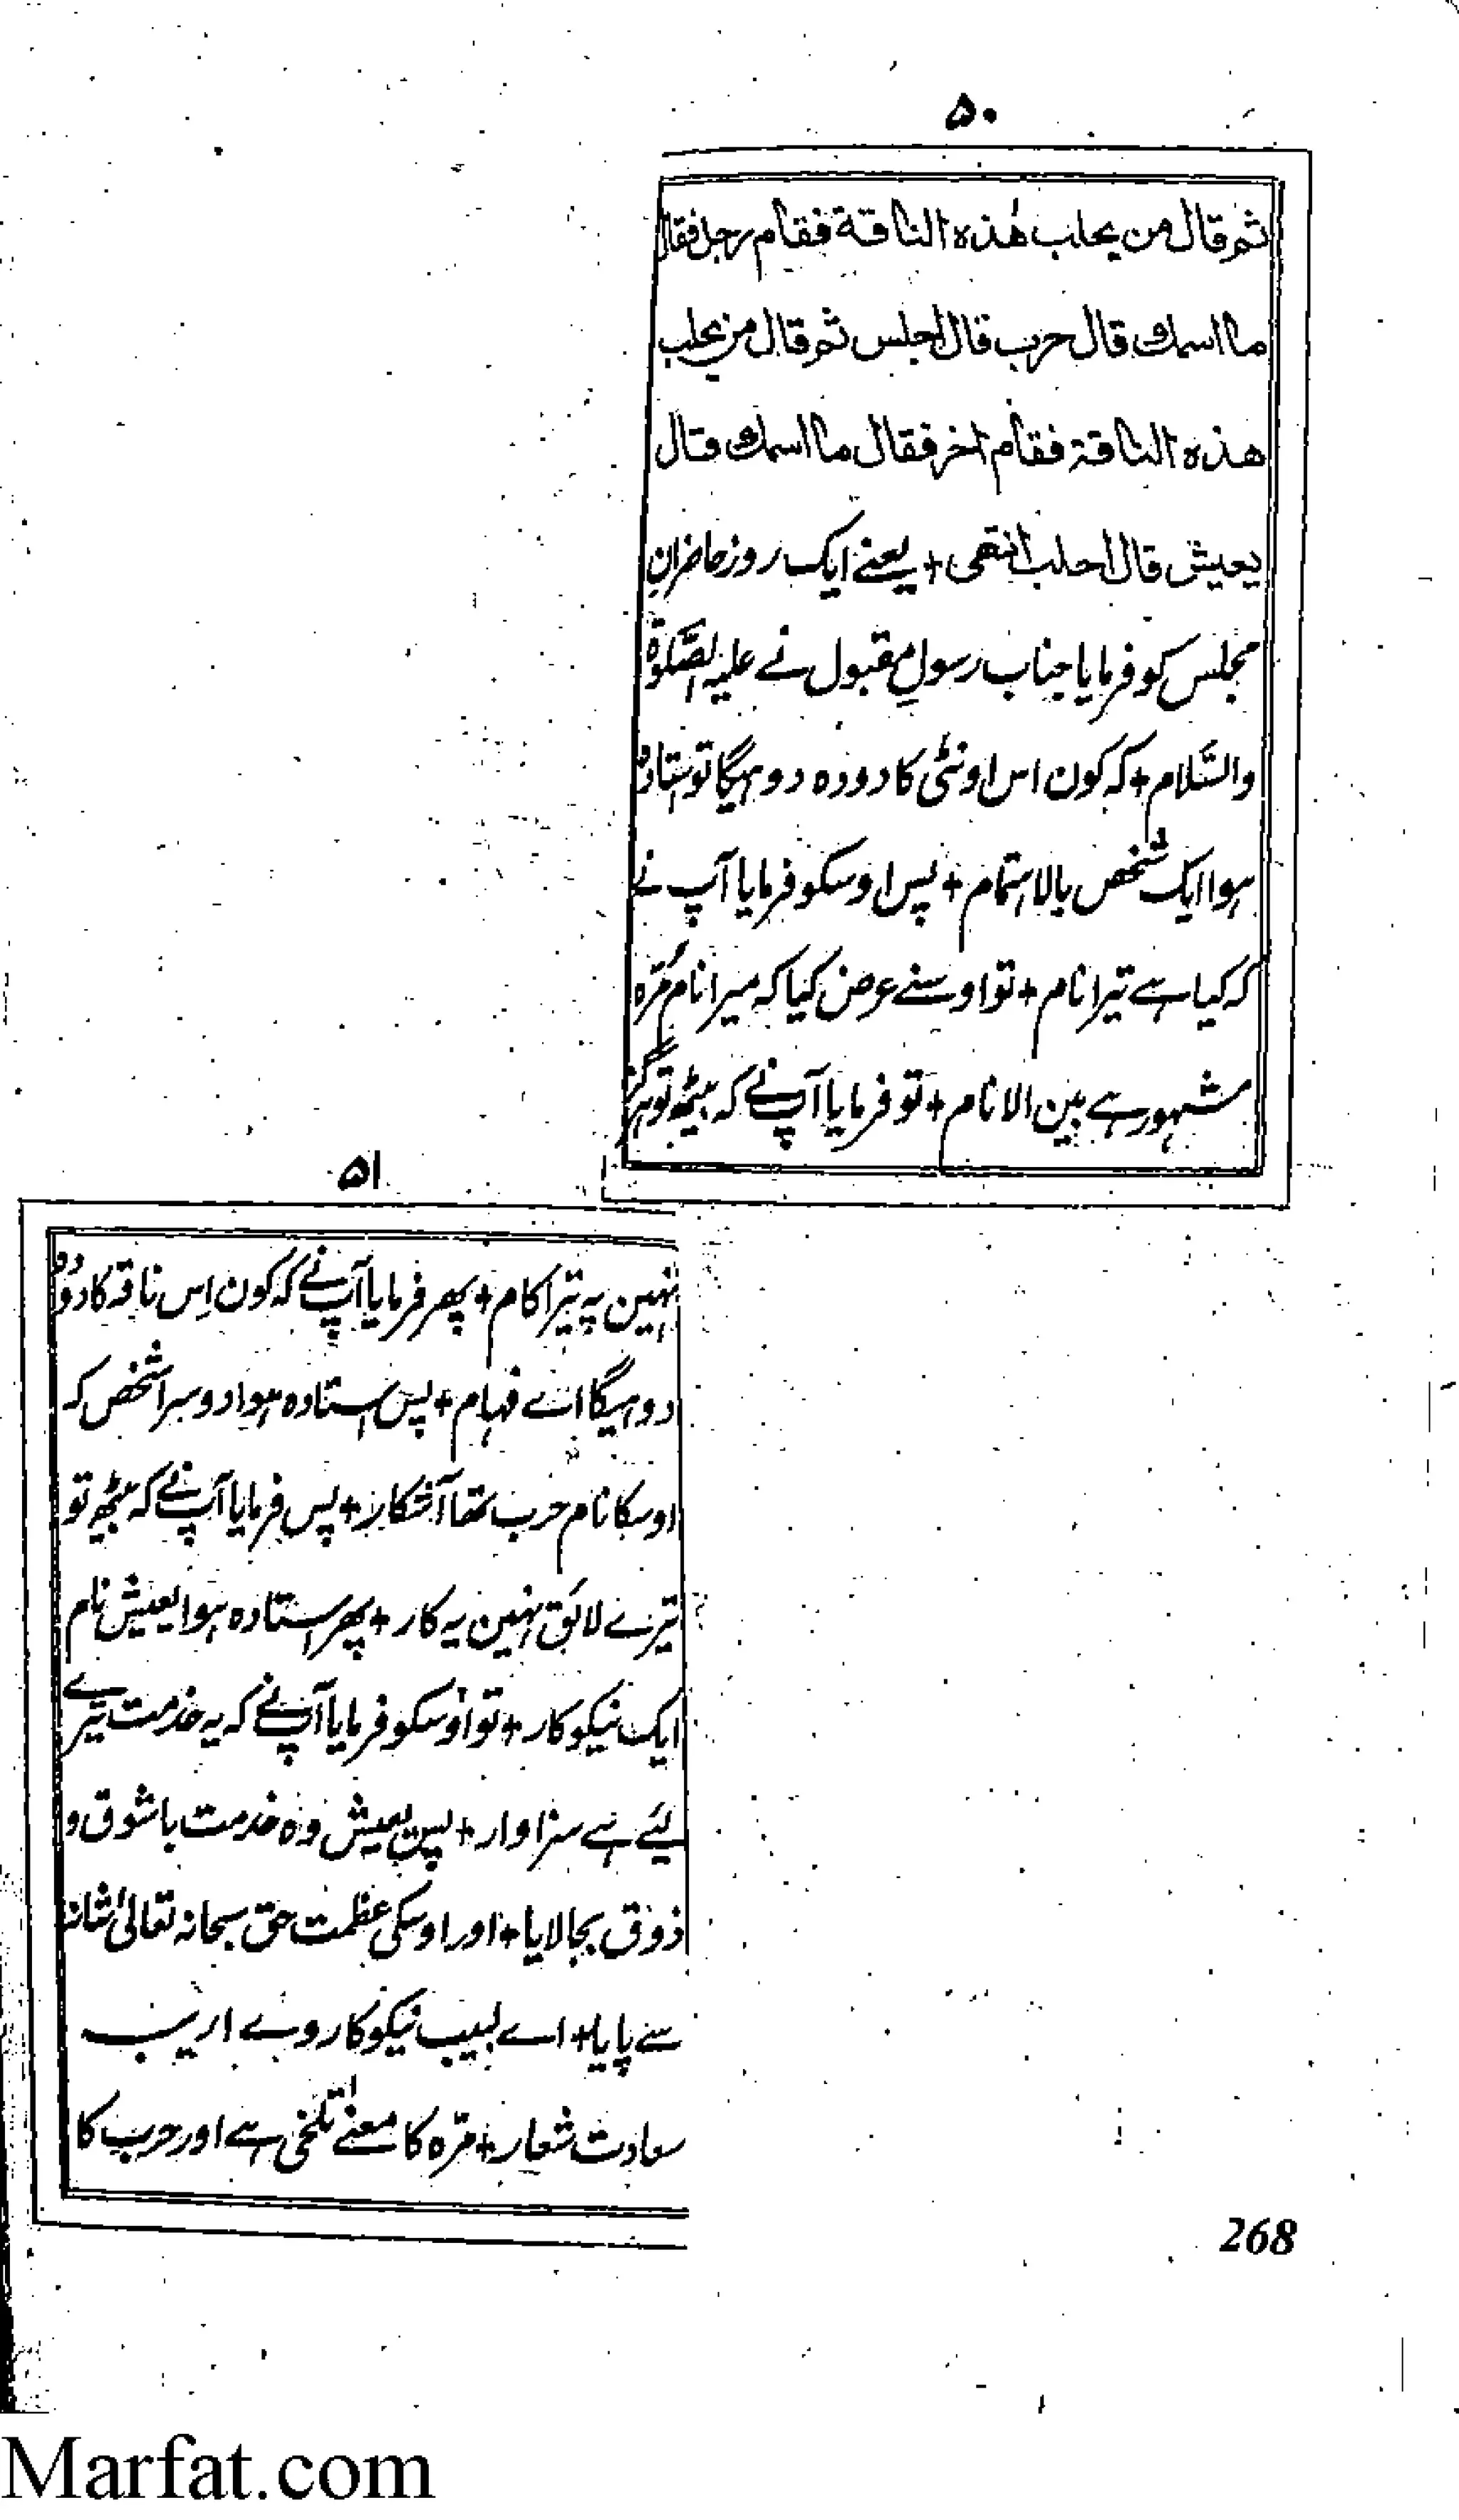 ۵۰
ثم قال من یحلب هٰذه الناقة فقام رجل فقال
ما اسمك قال حرب قال اجلس ثم قال من یحلب
هذه الناقة فقام اخر فقال ما اسمك قال
یعیش قال احلب انتهی + یعنے ایک روز حاضران
مجلس کو فرمایا جناب رسولِ مقبول نے علیہ الصّلوٰۃ
والسّلام + کہ کون اس اونٹی کا دودہ دوہیگا تو ستادہ
ہوا ایک شخص بالاہتمام + پس اوسکو فرمایا آپ نے
کہ کیا ہے تیرا نام + تو اوسنے عرض کیا کہ میرا نام مُرّہ
مشہور ہے بین الانام + تو فرمایا آپنے کہ بیٹھ تو ہرگز
۵۱
نہین یہ تیرا کام + پھر فرمایا آپنے کہ کون اِس ناقہ کا دودہ
دوہیگا اے فہام + پس استادہ ہوا دوسرا شخص کہ
اوسکا نام حرب تھا آشکار + پس فرمایا آپنے کہ بیٹھ تو
تیرے لائق نہین یہ کار + پھر استادہ ہوا یعیش نام
ایک نیکوکار + تو اوسکو فرمایا آپنے کہ یہ خدمت تیرے
لیئے ہے سزاوار + پس یعیش وہ خدمت باشوق و
ذوق بجالایا + اور اوسکی عظمت حق سبحانہ تعالیٰ شانہ
سے پایا + اے لبیب نیکوکار وے اریب
سعادت شعار + مرّہ کا معنے تلخی ہے اور حرب کا
268
Marfat.com